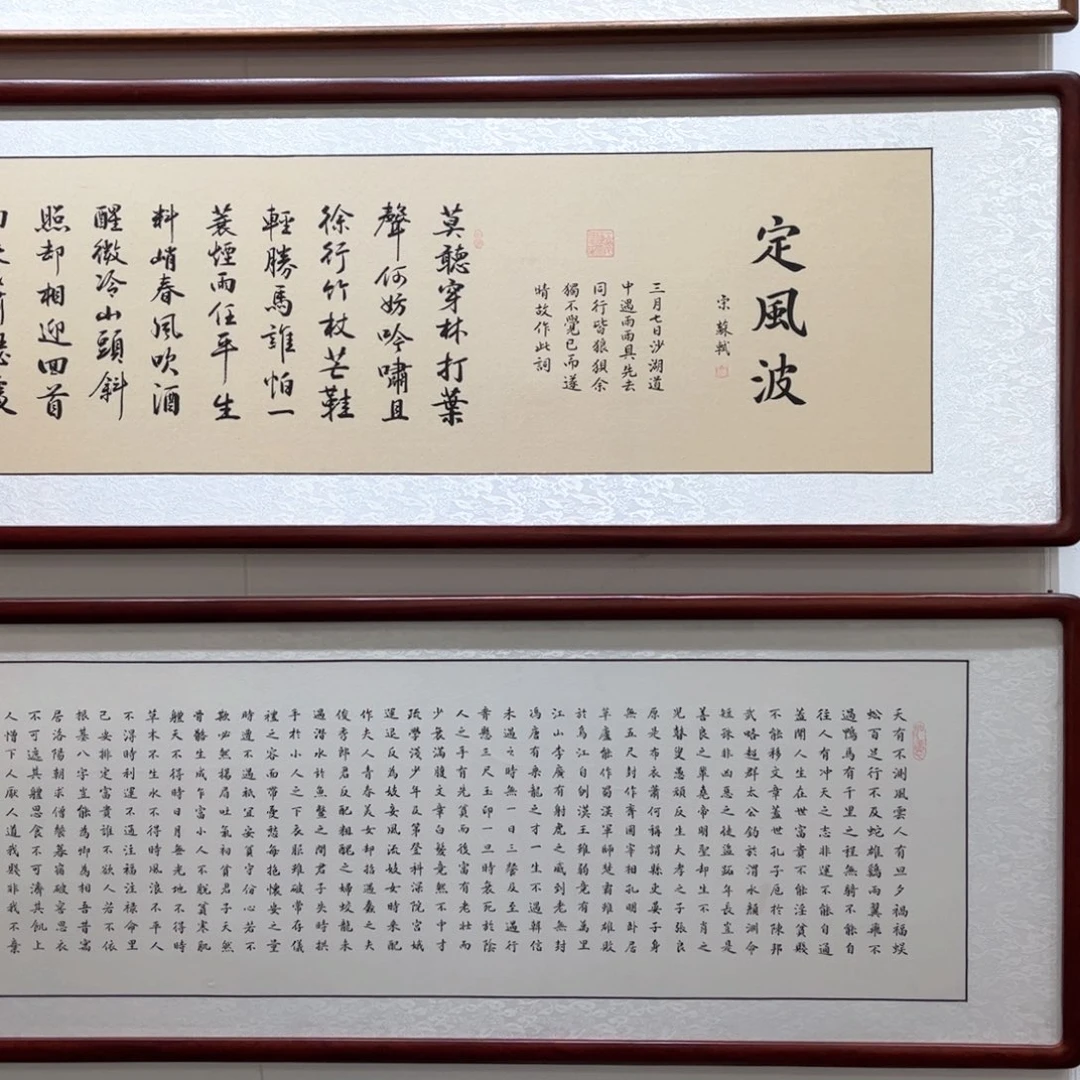 定風波
宋 蘇軾
三月七日沙湖道
中遇雨雨具先去
同行皆狼狽余
獨不覺已而遂
晴故作此詞
莫聽穿林打葉
聲何妨吟嘯且
徐行竹杖芒鞋
輕勝馬誰怕一
蓑煙雨任平生
料峭春風吹酒
醒微冷山頭斜
照却相迎回首
天有不測風雲人有旦夕禍福蜈
蚣百足行不及蛇雄鷄兩翼飛不
過鴨馬有千里之程無騎不能自
往人有冲天之志非運不能自通
蓋聞人生在世富貴不能淫貧賤
不能移文章蓋世孔子厄於陳邦
武略超群太公釣於渭水顏淵命
短殊非凶惡之徒盜跖年長豈是
善良之輩堯帝明聖却生不肖之
兒瞽叟愚頑反生大孝之子張良
原是布衣蕭何稱謂縣吏晏子身
無五尺封作齊國宰相孔明卧居
草廬能作蜀漢軍師楚霸雖雄敗
於烏江自刎漢王雖弱竟有萬里
江山李廣有射虎之威到老無封
馮唐有乘龍之才一生不遇韓信
未遇之時無一日三餐及至遇行
懸三尺玉印一旦時衰死於陰
人之手有先貧而後富有老壯而
少衰滿腹文章白髮竟然不中才
疏學淺少年及第登科深院宮娥
運退反為妓妾風流妓女時來配
作夫人青春美女却招過蠢之夫
俊秀郎君反配粗醜之婦蛟龍未
遇潛水於魚鱉之間君子失時拱
手於小人之下衣服雖破常存儀
禮之容面帶憂愁每抱懷安之量
時遭不遇祇宜安貧守份心若不
欺必然揚眉吐氣初貧君子天然
骨骼生成乍富小人不脫貧寒肌
體天不得時日月無光地不得時
草木不生水不得時風浪不平人
不得時利運不通注福注祿命里
己安排定富貴誰不欲人若不依
根基八字豈能為卿為相吾昔寓
居洛陽朝求僧餐暮宿破窖思衣
不可遮其體思食不可濟其飢上
人憎下人厭人道我賤非我不棄